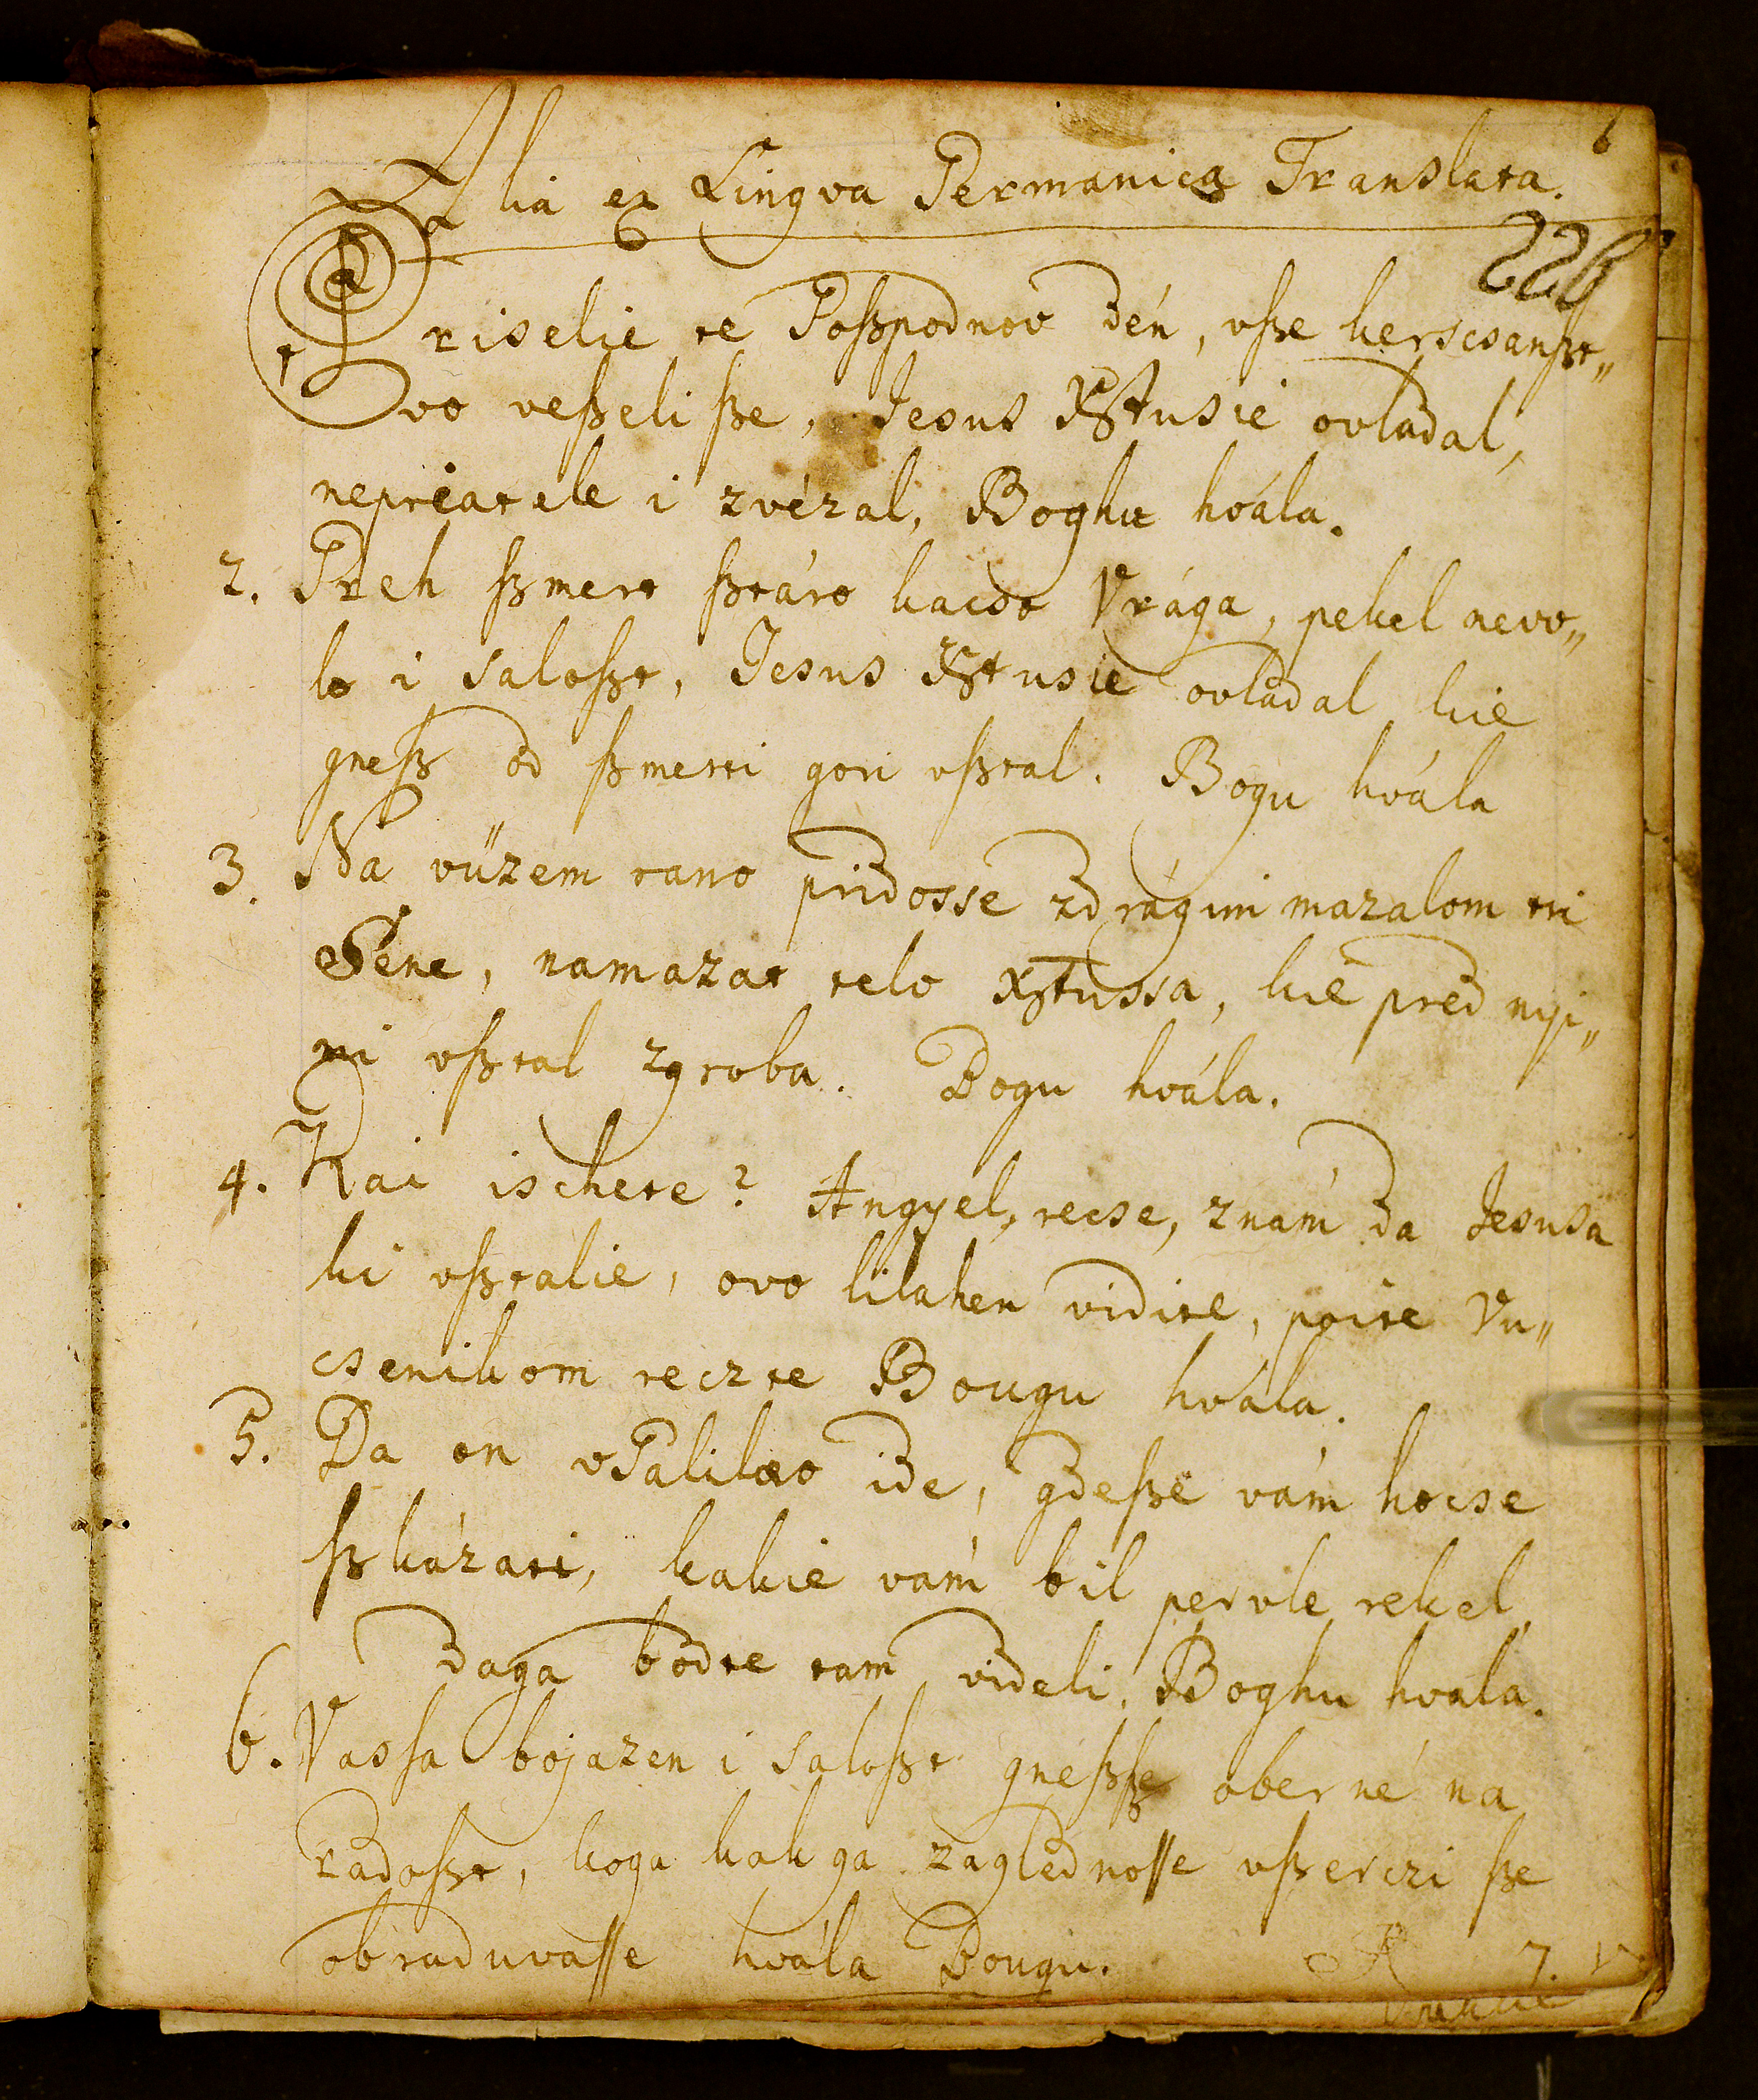 6
Alia ex Lingva Germanica Translata.
226
Priselie te Goßpodnov dén, vße kerscsanßt„
vo veßeli ße, Jesus Xßtusie ovládal,
nepriatele i zvézal, Boghu hvála.
2. Greh ßmert ßtáro kacso Vrága, pekel nevo„
lo i saloßt, Jesus Xßtusie ovládal kie
gneß od ßmerti gori vßtal. Bogu hvála
3. Na vüzem rano pridosse zdrágim mazalom tri
Séne, namazat telo Xßtussa, kie pred nyi„
mi vßtal zgroba. Bogu hvála.
4. Kai ischete? Angyel, recse, znám da Jesusa
ki vßtalie, ovo lilahen vidite, poite Vu„
csenikom reczte Bougu hvála.
5. Da on vGalilæo ide, gdeße vám hocse
ßkázati, kakie vám bil pervle rekel,
daga bodte tam videli, Boghu hvala.
6. Vassa bojazen i saloßt gneßße oberné na
radoßt, koga kak ga zaglednosse vßerczi ße
obraduvasse hvála Bougu.
7. V